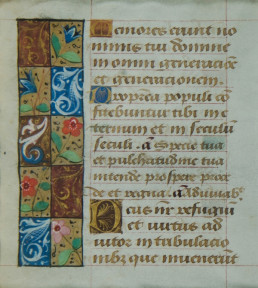 Memores erunt no
minis tui domine
in omni generatiōe
et generationem.
Propterea populi cō
fitebuntur tibi in e
ternum et in seculum
seculi. a Specie tua
et pulchritudine tua
intende prospere proce
de et regna. a Adiuvab͛
Deus nr̄ refugiū
et virtus ad
iutor in tribulacio
nibꝫ que invenerūt